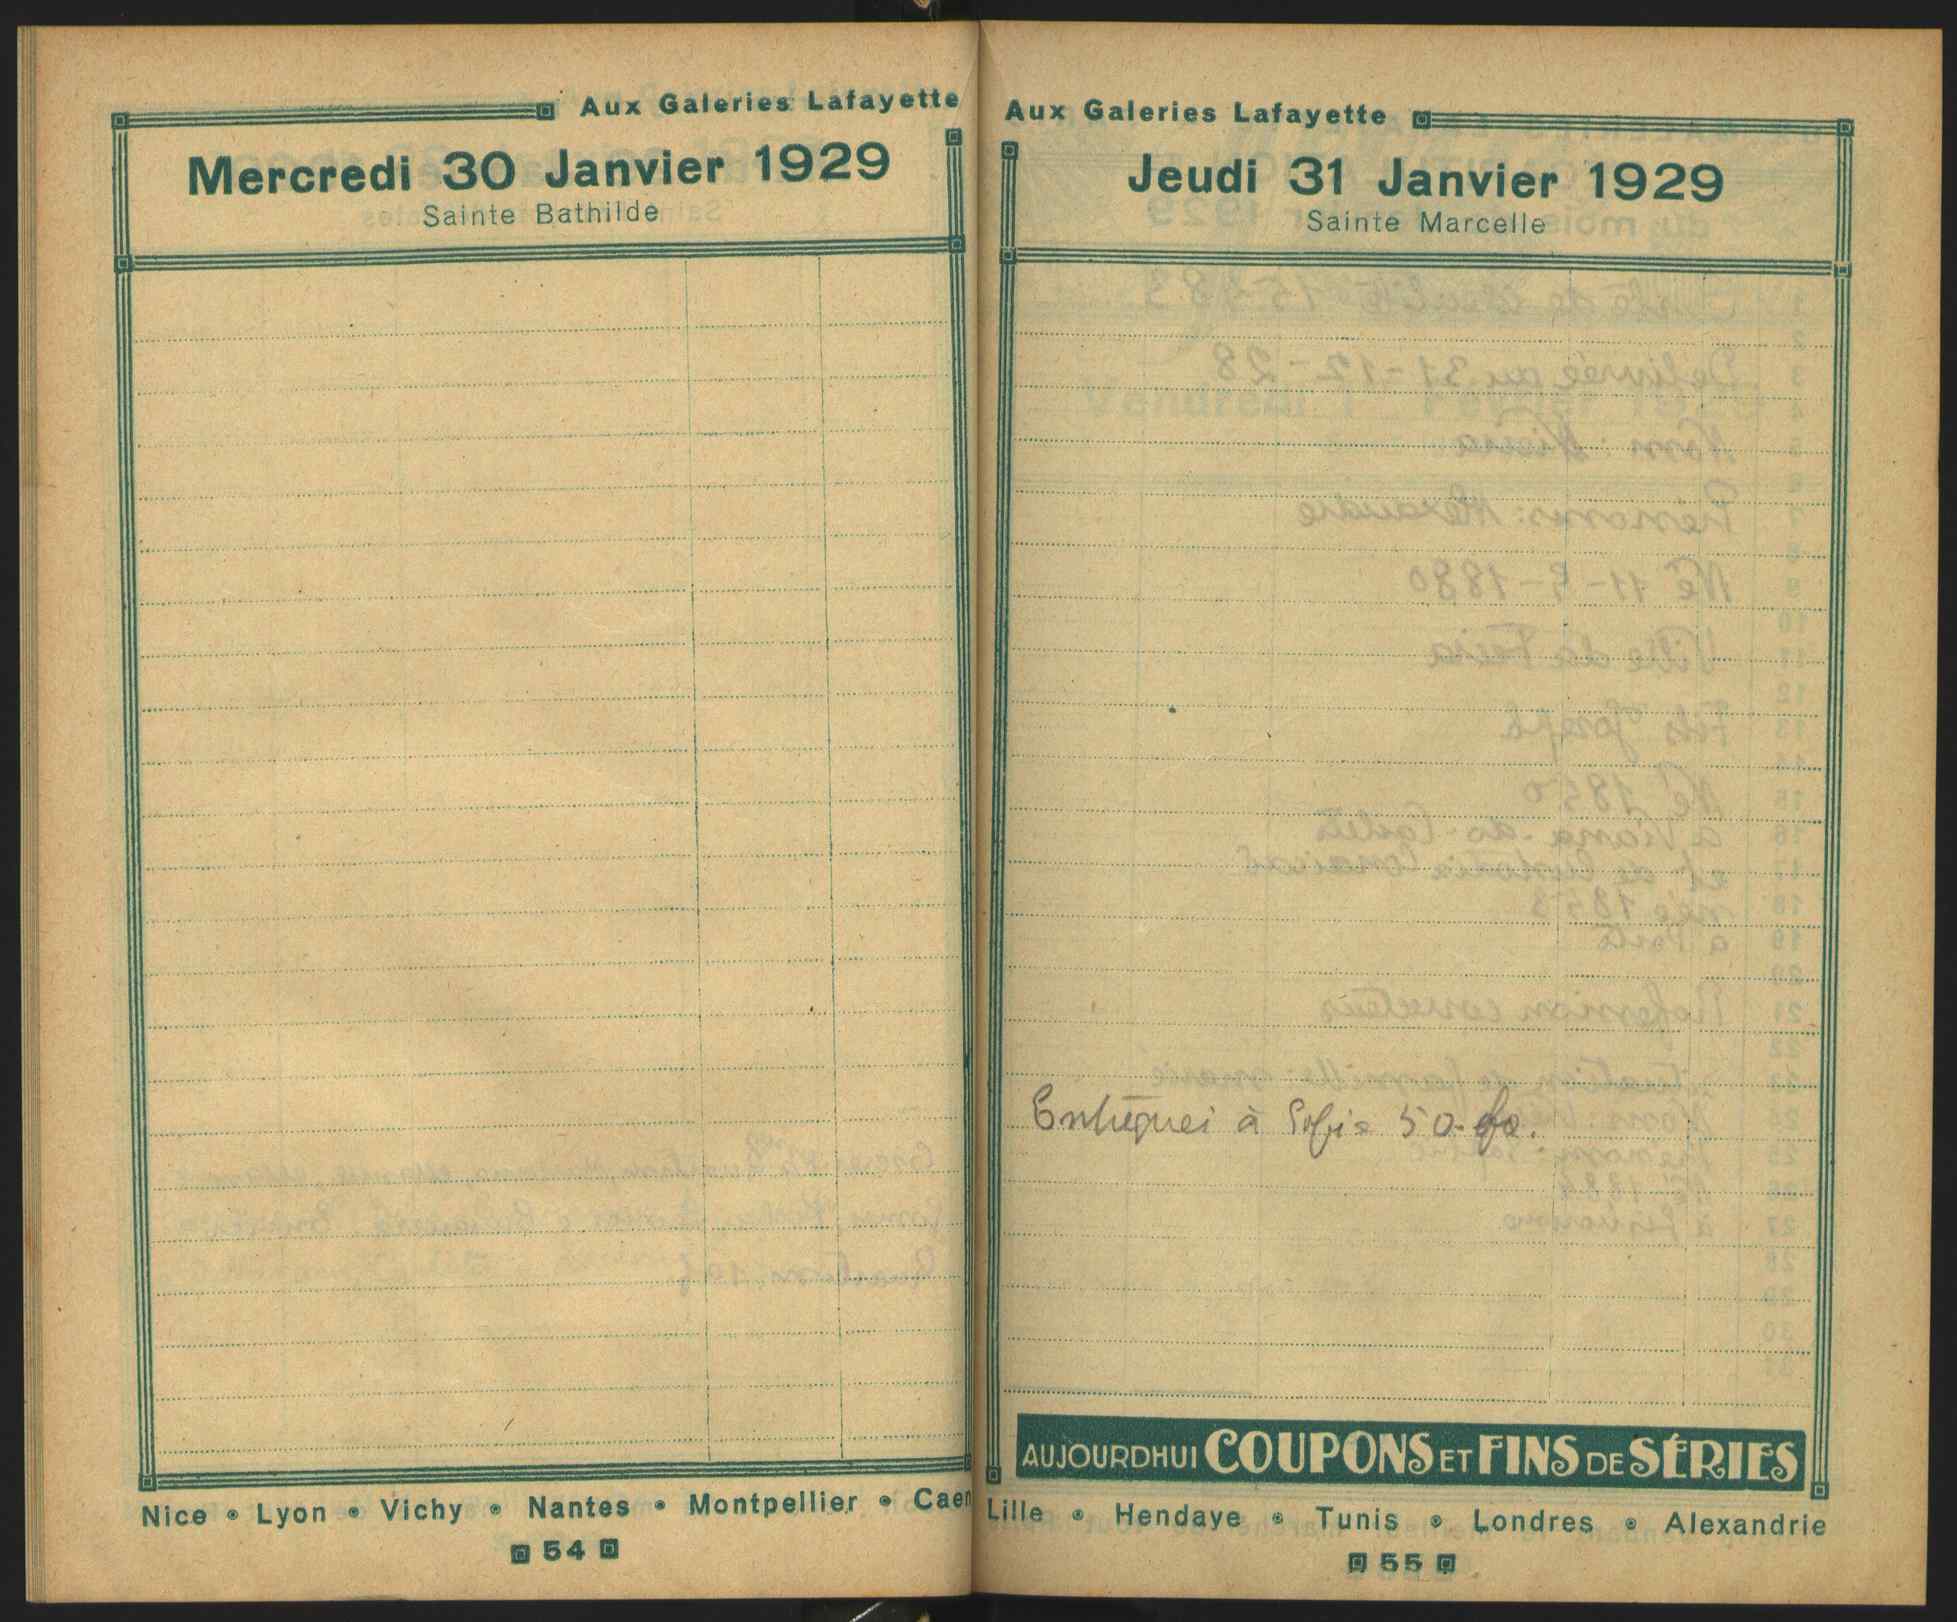 Aux Galeries Lafayette
Mercredi 30 Janvier 1929
Sainte Bathilde
Nice • Lyon • Vichy • Nantes • Montpellier • Caen
54
Aux Galeries Lafayette
Jeudi 31 Janvier 1929
Sainte Marcelle
Entreguei à Sofia 50
AUJOURDHUI COUPONS ET FINS DE SÉRIES
Lille • Hendaye • Tunis • Londres • Alexandrie
55